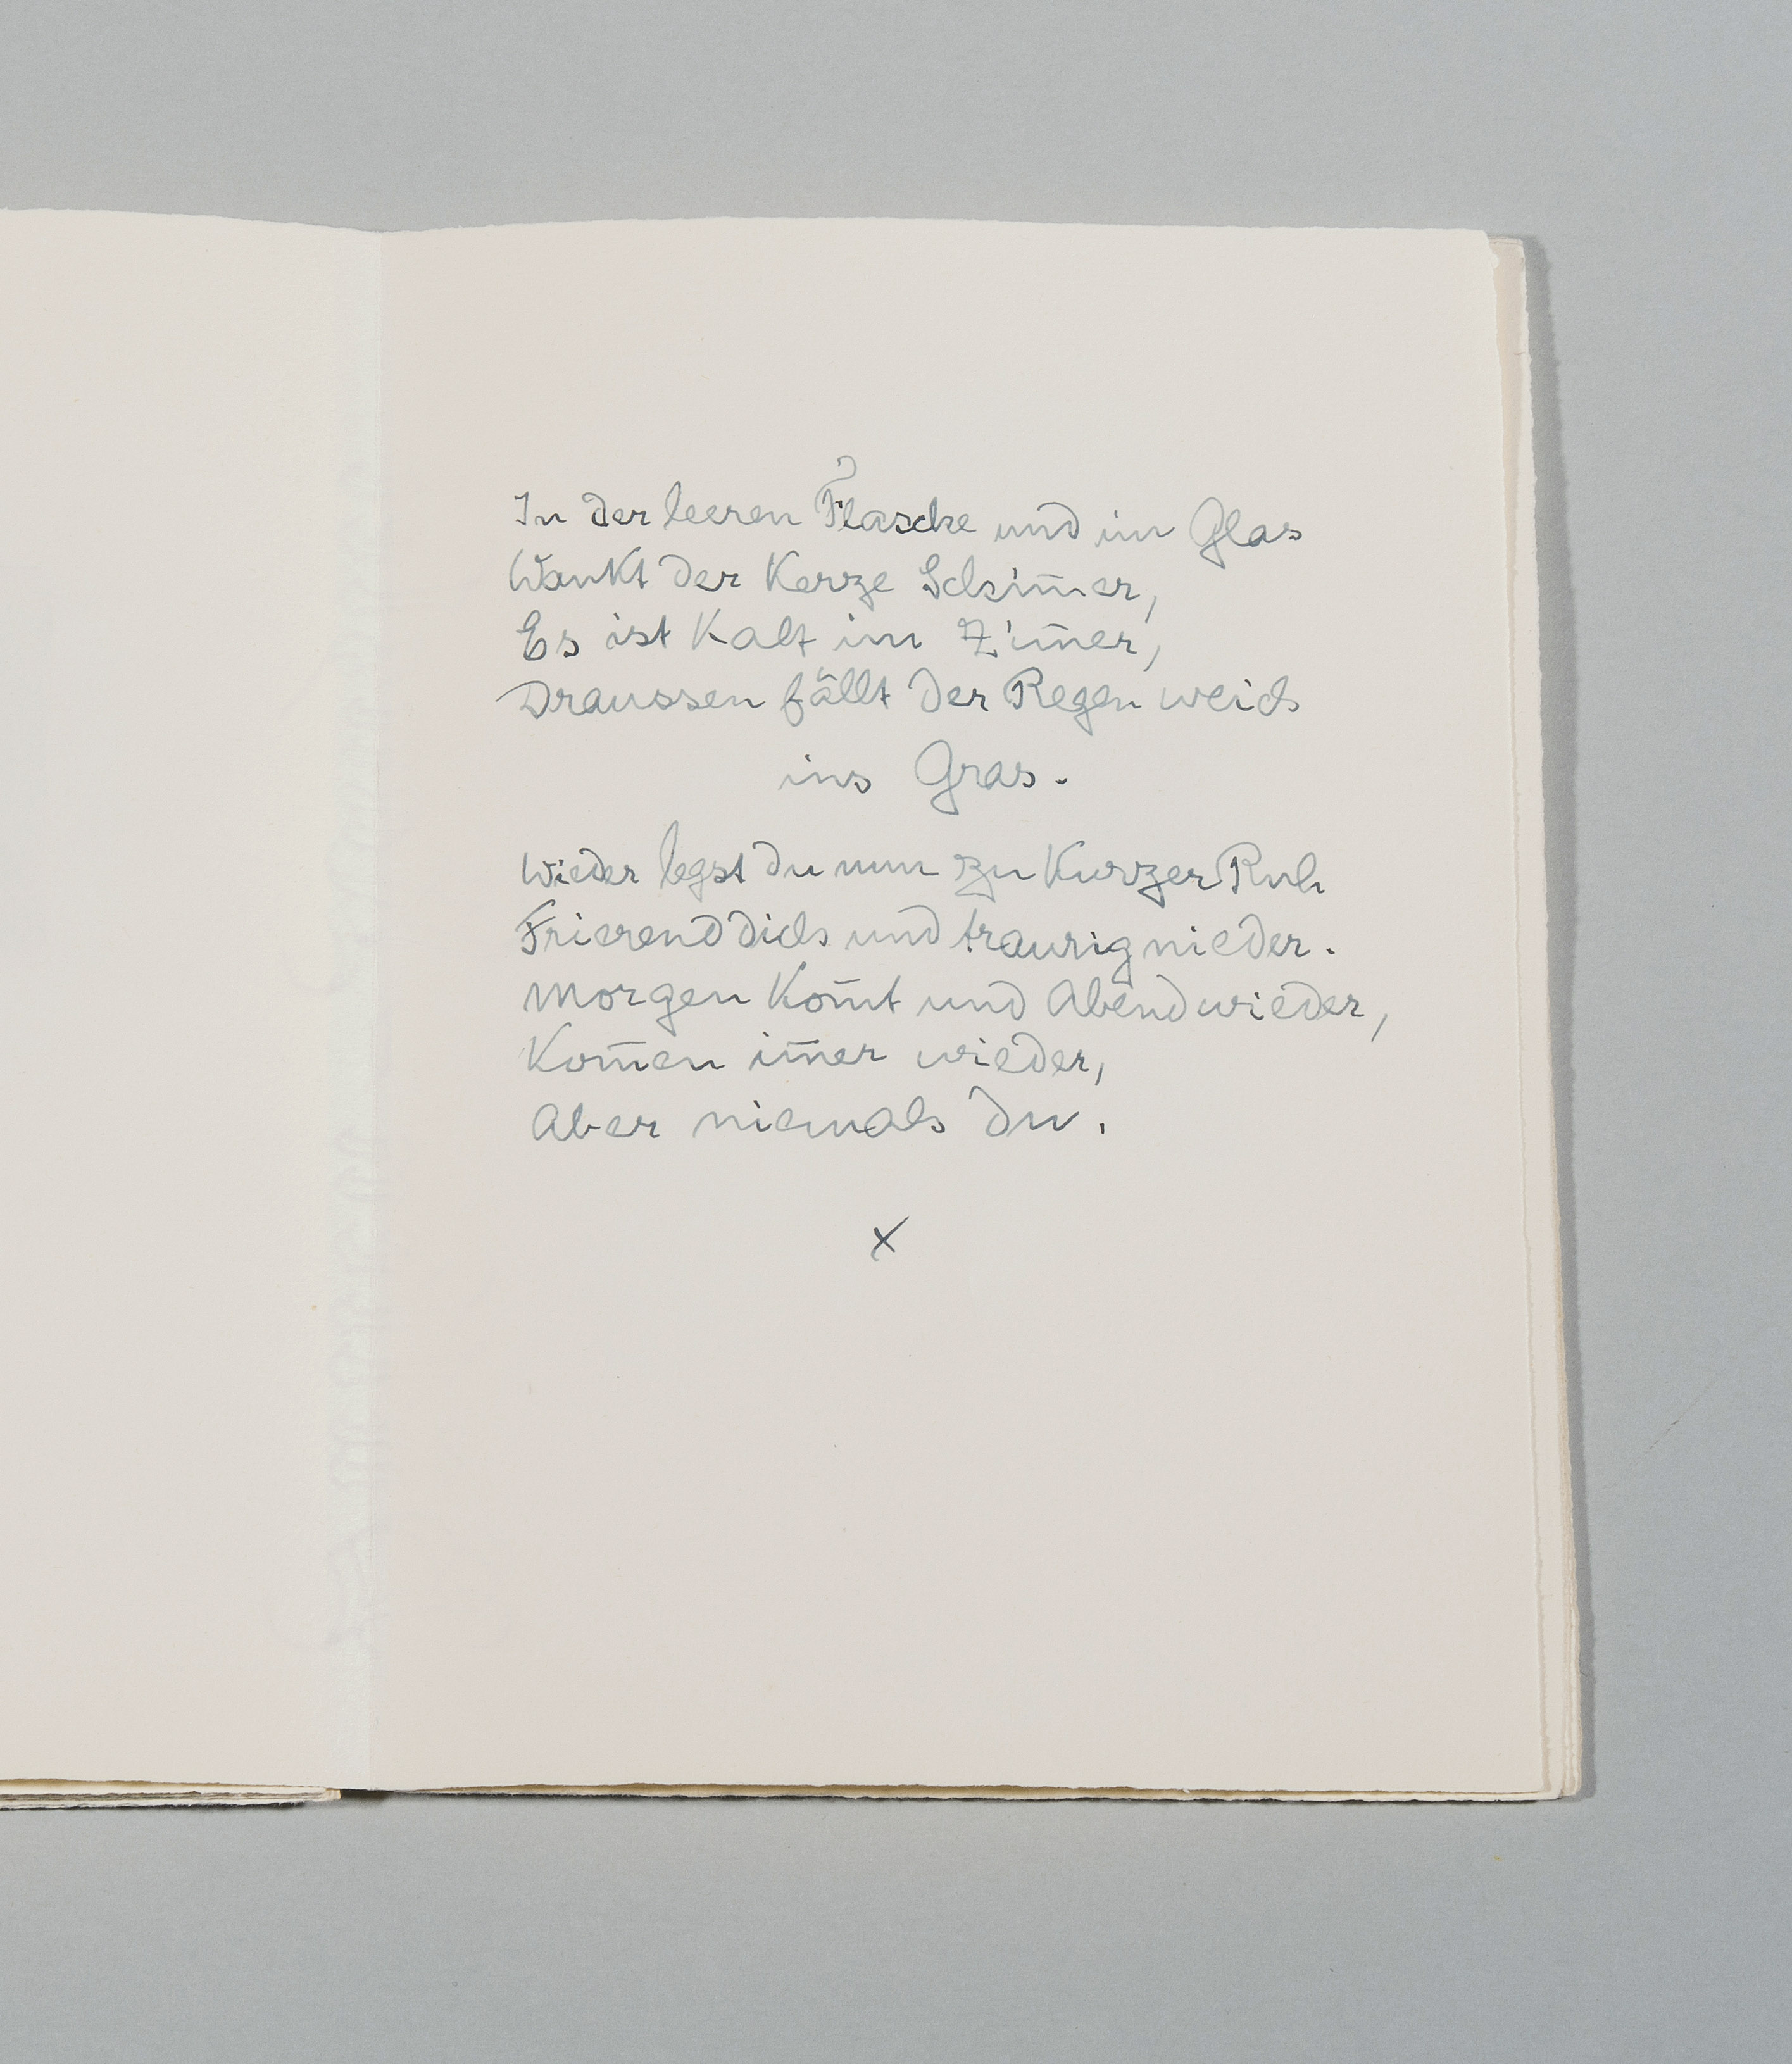 In der leeren Flasche und im Glas
Wankt der Kerze Schim̄er,
Es ist Kalt im Zim̄er,
Draussen fällt der Regen weich
ins Gras.
Wieder legst du nun zu Kurzer Ruh
Frierend dich und traurig nieder.
Morgen Kom̄t und Abend wieder,
Kom̄en im̄er wieder,
Aber niemals du.
x